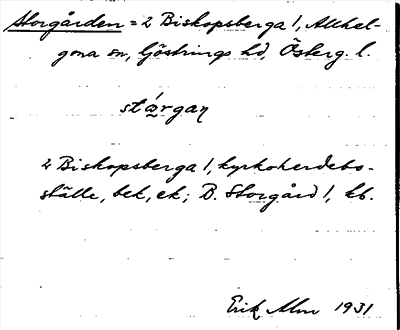 Storgården = 2 Biskopsberga 1, Allhel-
gona sn, Göstrings hd, Österg. l.
stårgan
2 Biskopsberga 1, kyrkoherdebo-
ställe, bek, ek; B. Storgård 1, kb.
Erik Alm 1931